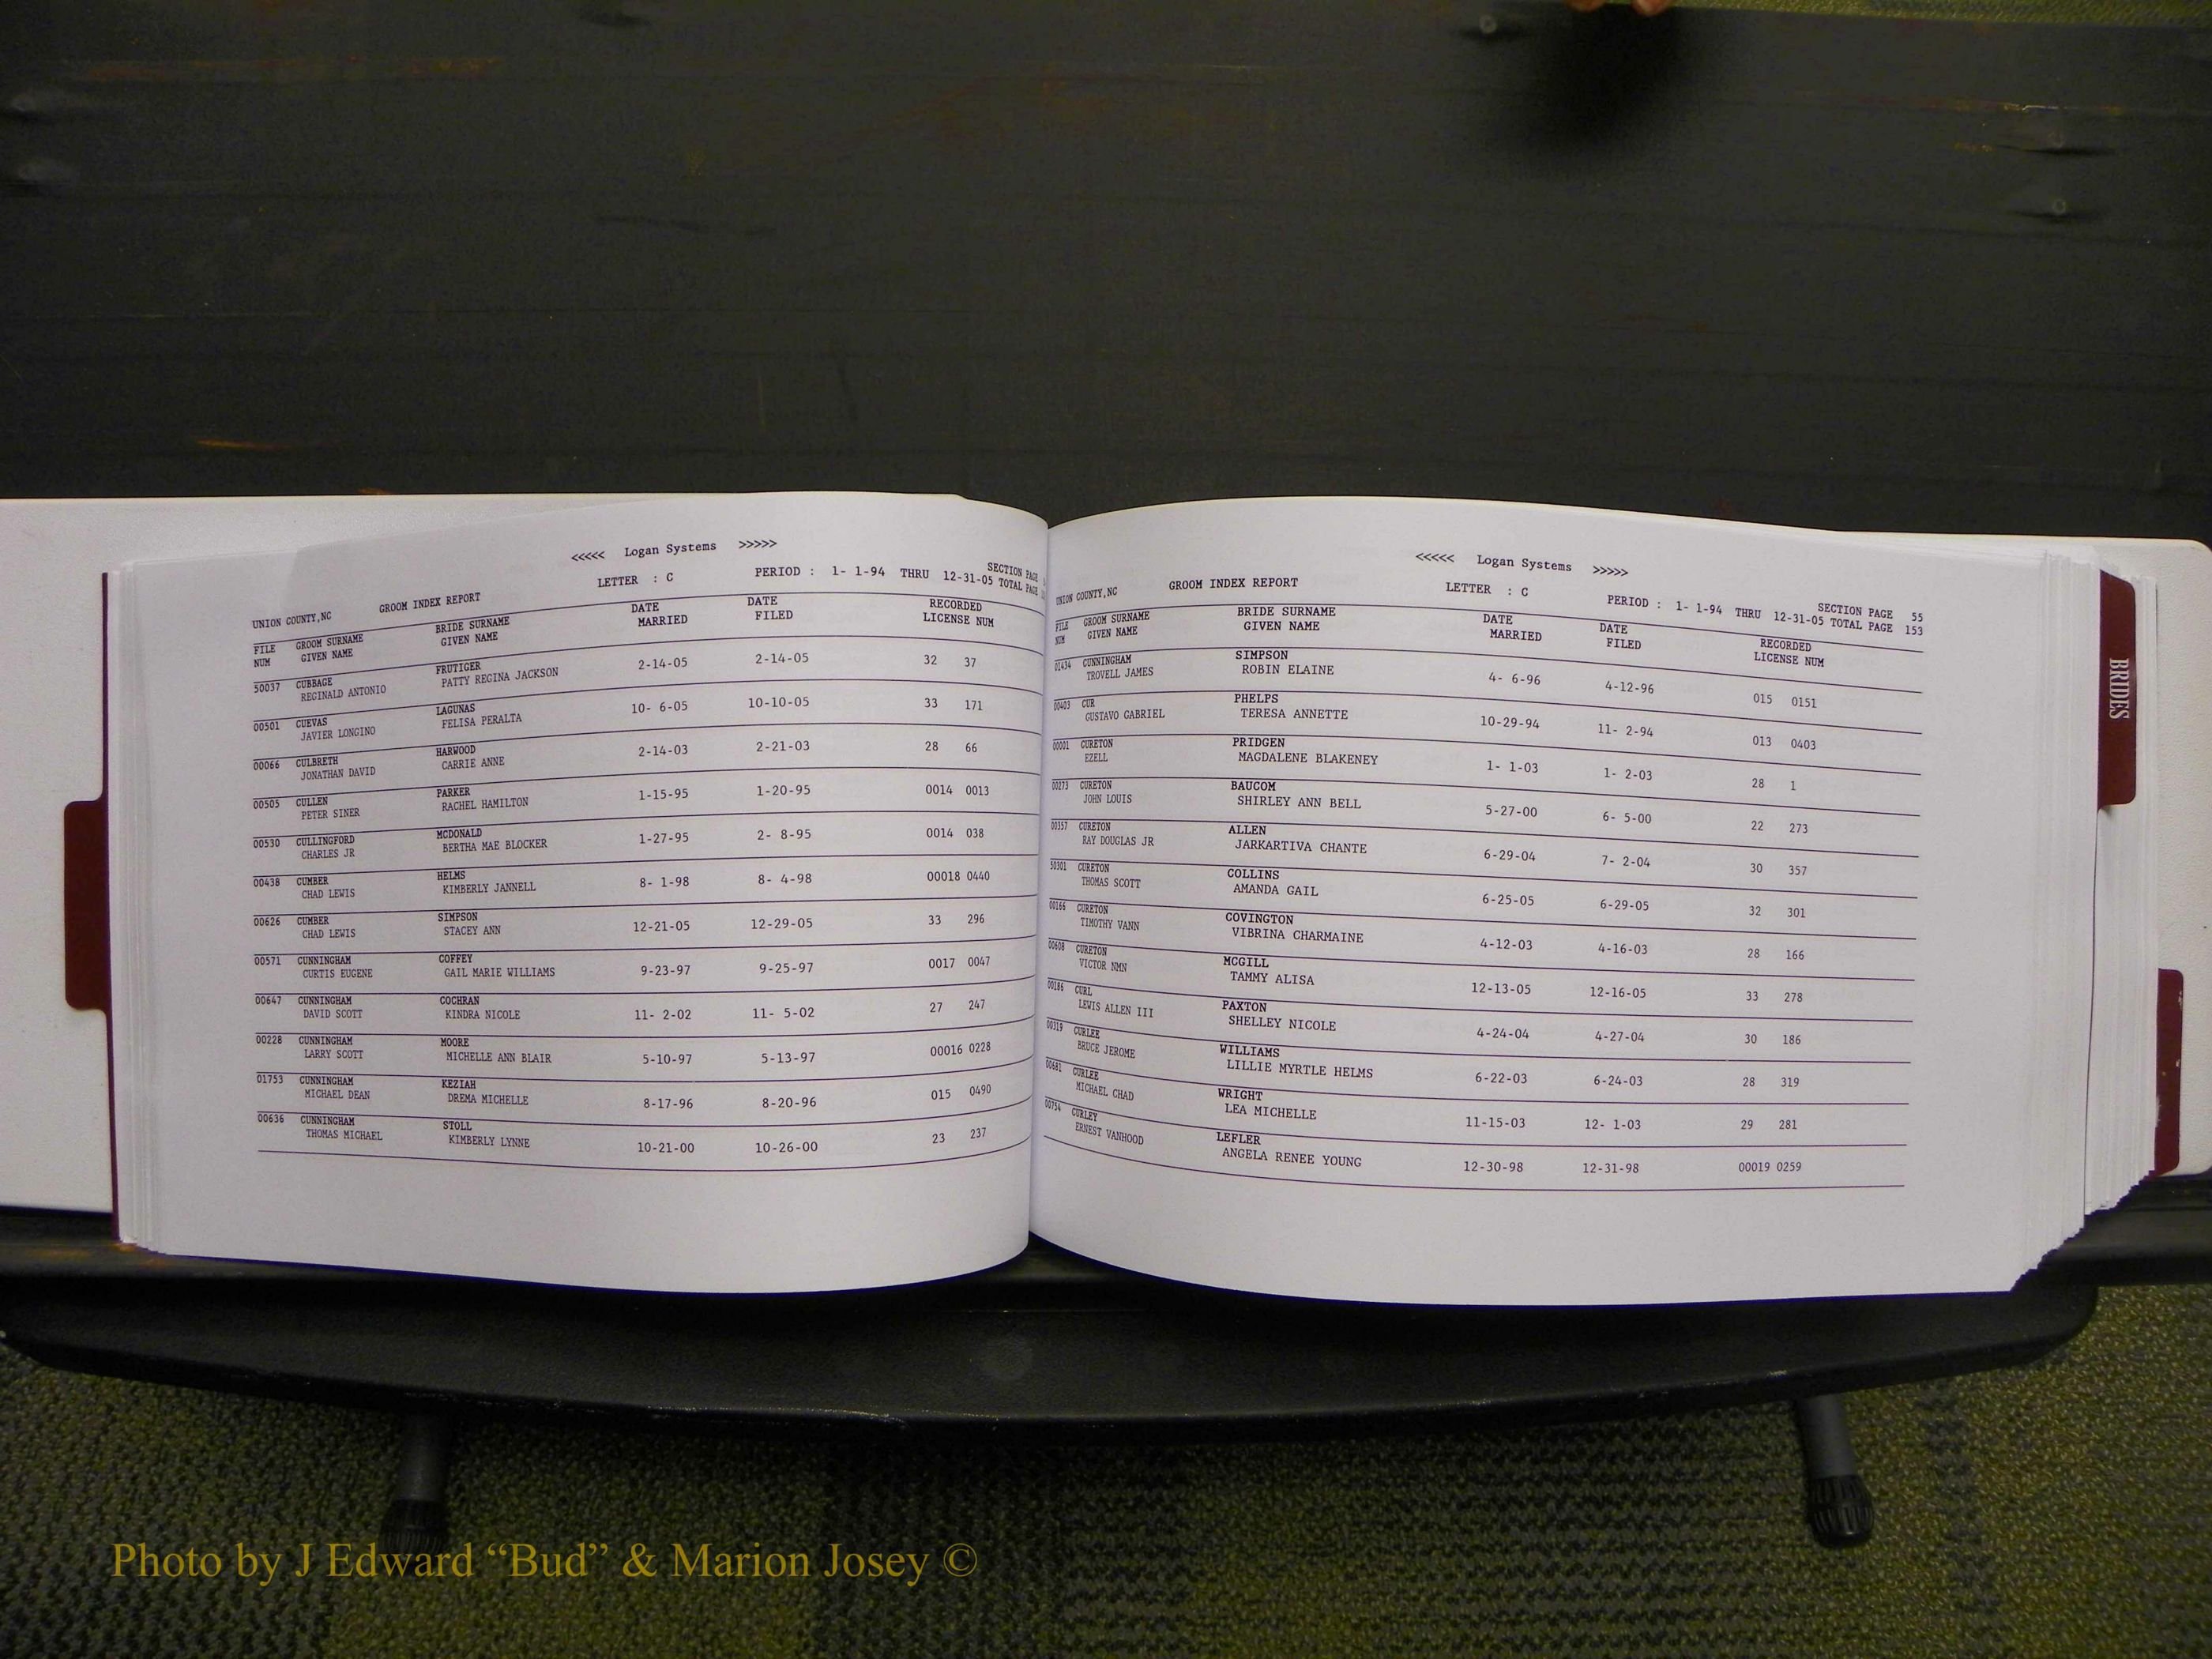 <<<<< Logan Systems >>>>>
UNION COUNTY,NC GROOM INDEX REPORT LETTER : C PERIOD : 1- 1-94 THRU 12-31-05 SECTION PAGE
TOTAL PAGE
FILE GROOM SURNAME BRIDE SURNAME DATE DATE RECORDED
NUM GIVEN NAME GIVEN NAME MARRIED FILED LICENSE NUM
50037 CUBBAGE FRUTIGER 2-14-05 2-14-05 32 37
REGINALD ANTONIO PATTY REGINA JACKSON
00501 CUEVAS LAGUNAS 10- 6-05 10-10-05 33 171
JAVIER LONGINO FELISA PERALTA
00066 CULBRETH HARWOOD 2-14-03 2-21-03 28 66
JONATHAN DAVID CARRIE ANNE
00505 CULLEN PARKER 1-15-95 1-20-95 0014 0013
PETER SINER RACHEL HAMILTON
00530 CULLINGFORD MCDONALD 1-27-95 2- 8-95 0014 038
CHARLES JR BERTHA MAE BLOCKER
00438 CUMBER HELMS 8- 1-98 8- 4-98 00018 0440
CHAD LEWIS KIMBERLY JANNELL
00626 CUMBER SIMPSON 12-21-05 12-29-05 33 296
CHAD LEWIS STACEY ANN
00571 CUNNINGHAM COFFEY 9-23-97 9-25-97 0017 0047
CURTIS EUGENE GAIL MARIE WILLIAMS
00647 CUNNINGHAM COCHRAN 11- 2-02 11- 5-02 27 247
DAVID SCOTT KINDRA NICOLE
00228 CUNNINGHAM MOORE 5-10-97 5-13-97 00016 0228
LARRY SCOTT MICHELLE ANN BLAIR
01753 CUNNINGHAM KEZIAH 8-17-96 8-20-96 015 0490
MICHAEL DEAN DREMA MICHELLE
00636 CUNNINGHAM STOLL 10-21-00 10-26-00 23 237
THOMAS MICHAEL KIMBERLY LYNNE
<<<<< Logan Systems >>>>>
UNION COUNTY,NC GROOM INDEX REPORT LETTER : C PERIOD : 1- 1-94 THRU 12-31-05 SECTION PAGE 55
TOTAL PAGE 153
FILE GROOM SURNAME BRIDE SURNAME DATE DATE RECORDED
NUM GIVEN NAME GIVEN NAME MARRIED FILED LICENSE NUM
01434 CUNNINGHAM SIMPSON 4- 6-96 4-12-96 015 0151
TROVELL JAMES ROBIN ELAINE
00403 CUR PHELPS 10-29-94 11- 2-94 013 0403
GUSTAVO GABRIEL TERESA ANNETTE
00001 CURETON PRIDGEN 1- 1-03 1- 2-03 28 1
EZELL MAGDALENE BLAKENEY
00273 CURETON BAUCOM 5-27-00 6- 5-00 22 273
JOHN LOUIS SHIRLEY ANN BELL
00357 CURETON ALLEN 6-29-04 7- 2-04 30 357
RAY DOUGLAS JR JARKARTIVA CHANTE
50301 CURETON COLLINS 6-25-05 6-29-05 32 301
THOMAS SCOTT AMANDA GAIL
00166 CURETON COVINGTON 4-12-03 4-16-03 28 166
TIMOTHY VANN VIBRINA CHARMAINE
00608 CURETON MCGILL 12-13-05 12-16-05 33 278
VICTOR NMN TAMMY ALISA
00186 CURL PAXTON 4-24-04 4-27-04 30 186
LEWIS ALLEN III SHELLEY NICOLE
00319 CURLEE WILLIAMS 6-22-03 6-24-03 28 319
BRUCE JEROME LILLIE MYRTLE HELMS
00681 CURLEE WRIGHT 11-15-03 12- 1-03 29 281
MICHAEL CHAD LEA MICHELLE
00754 CURLEY LEFLER 12-30-98 12-31-98 00019 0259
ERNEST VANHOOD ANGELA RENEE YOUNG
BRIDES
Photo by J Edward “Bud” & Marion Josey ©